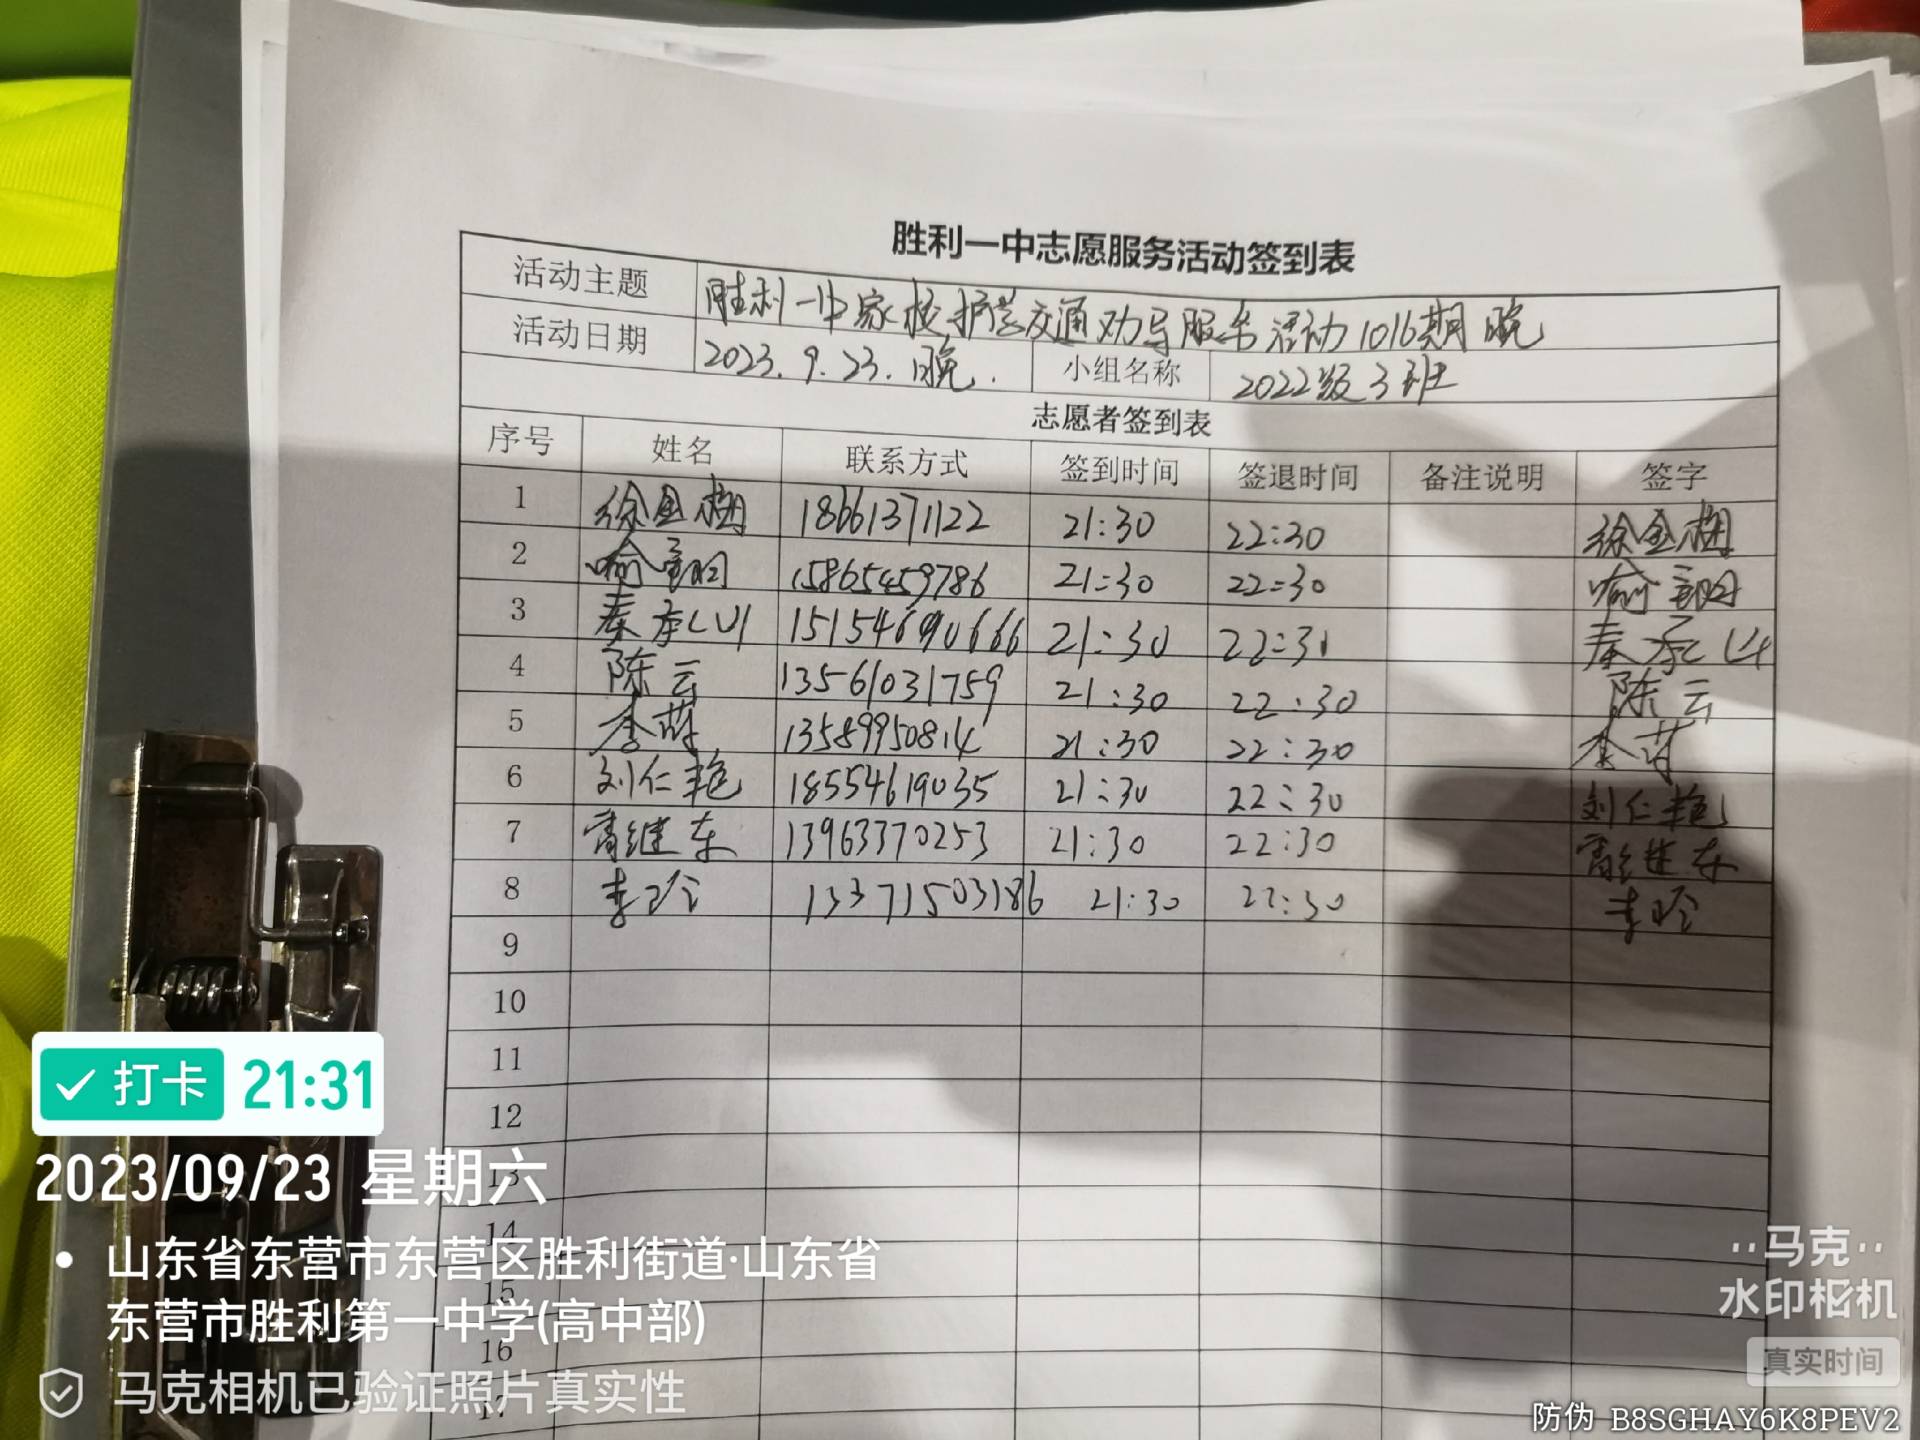 胜利一中志愿服务活动签到表
活动主题 胜利一中家校护学交通劝导服务活动1016期 晚
活动日期 2023.9.23.晚. 小组名称 2022级3班
志愿者签到表
序号 姓名 联系方式 签到时间 签退时间 备注说明 签字
1 徐金 18661371122 21:30 22:30 徐金
2 喻 15865459786 21:30 22:30 喻
3 秦承山 15154690666 21:30 22:30 秦承山
4 陈云 13561031759 21:30 22:30 陈云
5 李 13589950814 21:30 22:30 李
6 刘仁艳 18554619035 21:30 22:30 刘仁艳
7 继东 13963370253 21:30 22:30 继东
8 李玲 13371503186 21:30 22:30 李玲
9
10
11
12
13
14
15
16
17
打卡 21:31
2023/09/23 星期六
山东省东营市东营区胜利街道·山东省
东营市胜利第一中学(高中部)
马克相机已验证照片真实性
马克
水印相机
真实时间
防伪 B8SGHAY6K8PEV2